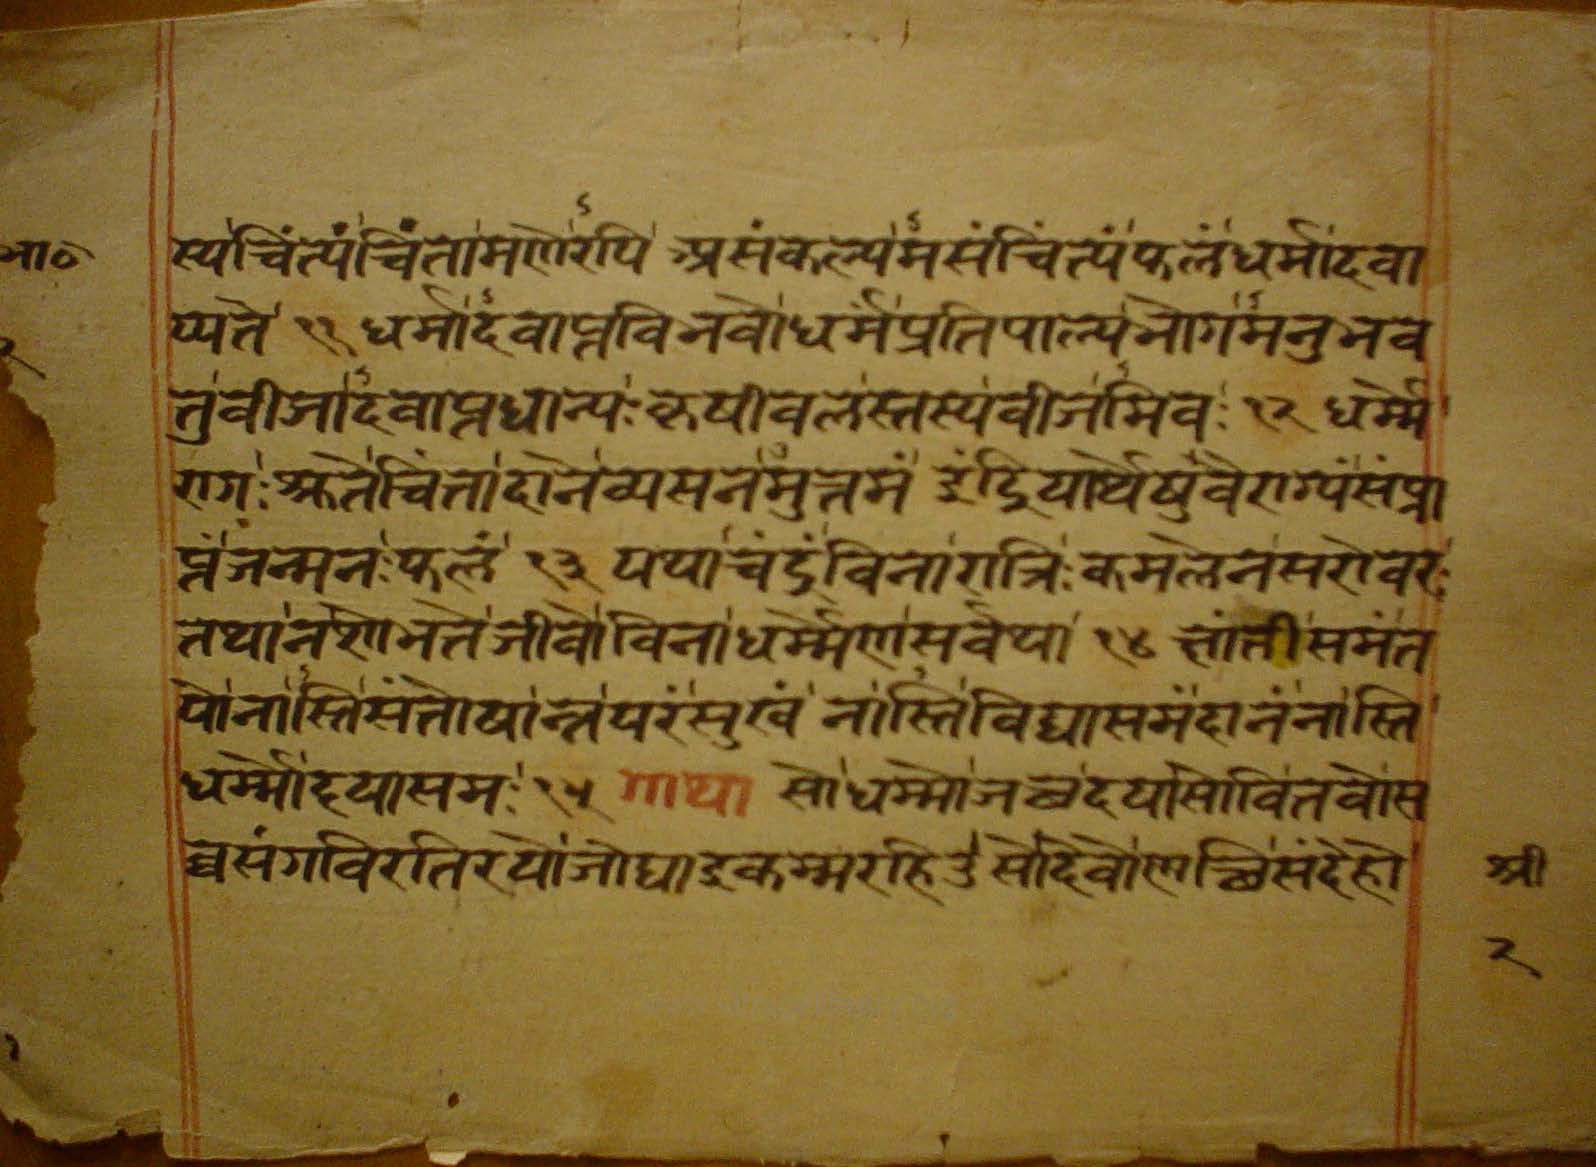 स्यचिंत्यंचिंतामणेरपि असंकल्प्यमसंचिंत्यंफलंधर्मादवा
प्यते ११ धर्मादवाप्तविभवोधर्मंप्रतिपाल्यभोगमनुभव
तुवीजादवाप्तधान्यःकृषीवलस्तस्यवीजमिवः १२ धर्म्मे
रागःश्रुतेचिंतादानेव्यसनमुत्तमं इंद्रियार्थेषुवैराग्यंसंप्रा
प्तंजन्मनःफलं १३ यथाचंद्रंविनारात्रिःकमलेनसरोवरः
तथानशोभतेजीवोविनाधर्म्मेणसर्वथा १४ क्षांतीसमंत
पोनास्तिसंतोषान्नपरंसुखं नास्तिविद्यासमंदानंनास्ति
धर्म्मोदयासमः १५ गाथा सोधम्मोजच्छदयासोवितवोस
व्वसंगविरतिरयोजोघाइकम्मरहिउसोदेवोणच्छिसंदेहो
श्री
२